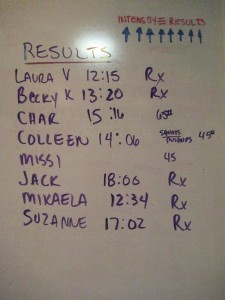 INTENSITY = RESULTS
RESULTS
LAURA V 12:15 Rx
BECKY K 13:20 Rx
CHAR 15:16 65#
COLLEEN 14:06 45#
MISSI 45
JACK 18:00 Rx
MIKAELA 12:34 Rx
SUZANNE 17:02 Rx